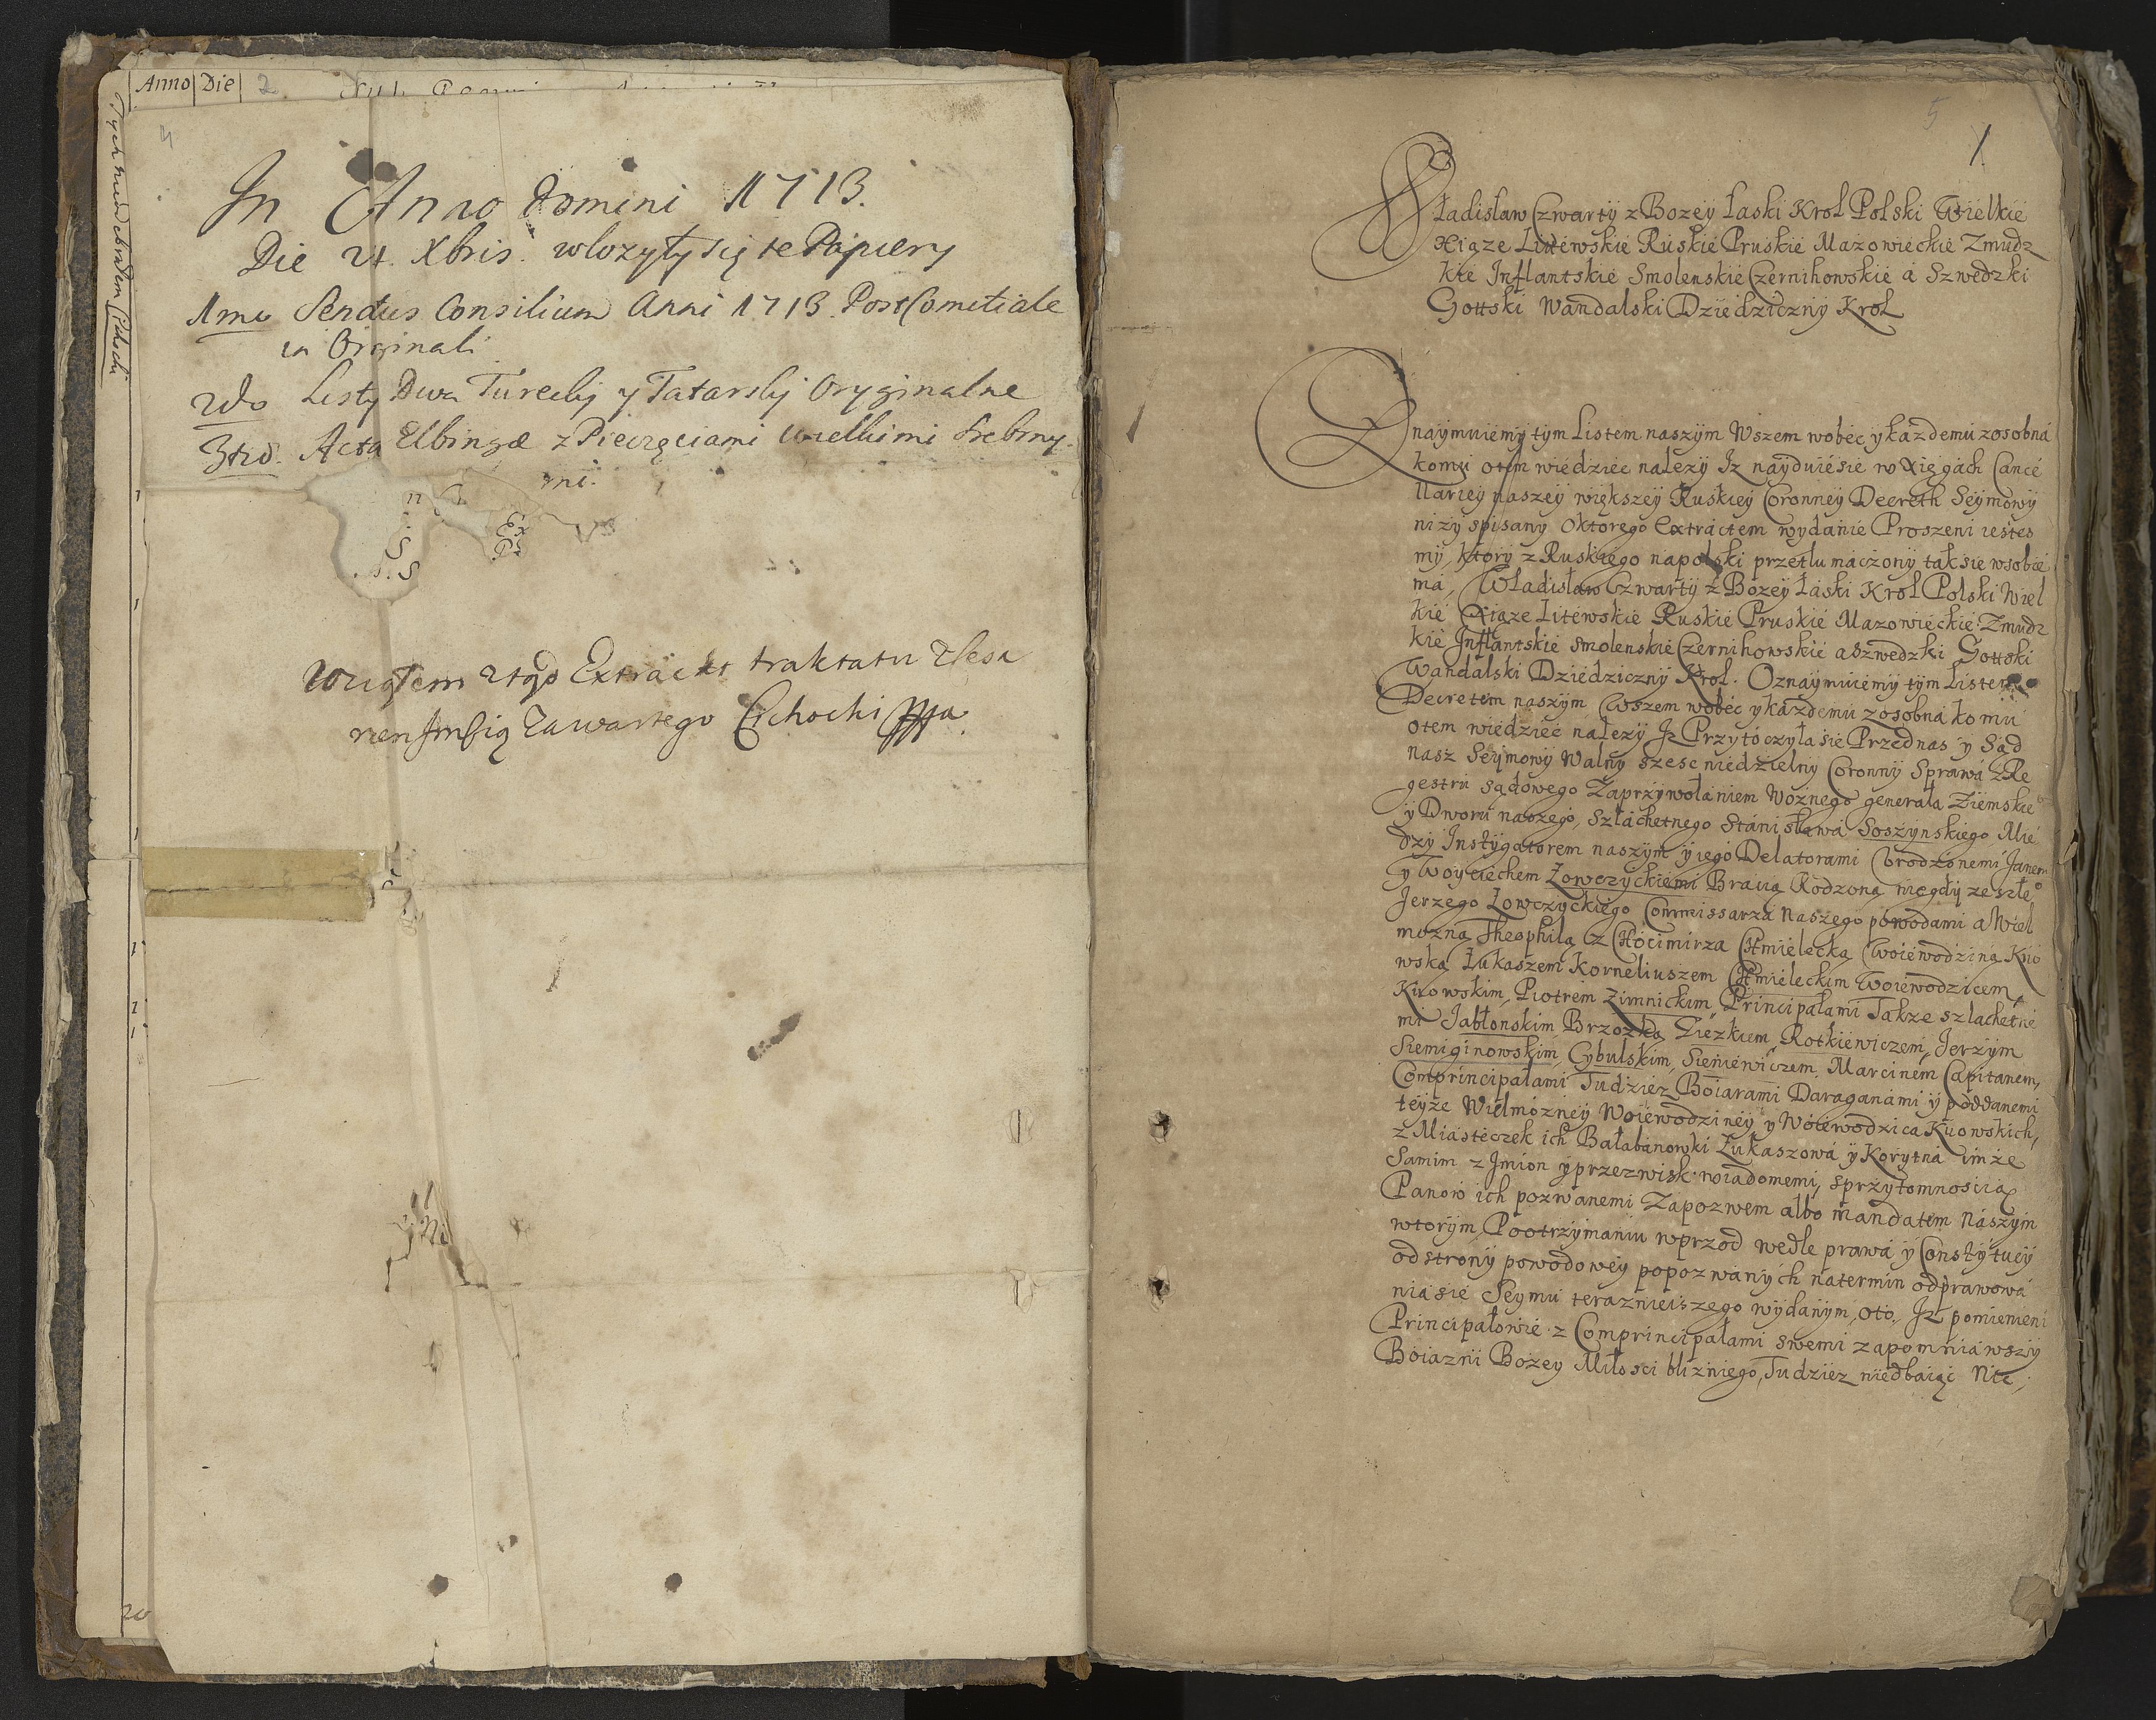 Anno Die 2
4
In Anno Domini 1713.
Die 21. Xbris. wlozyły się te Papiery
1mo Senatus Consilium Anni 1713. PostComitiale
in Orginali
2do Listy Dwa Turecky y Tatarsky Oryginalne
3tio. Acta Elbingæ z Pieczęciami wielkimi srebrny-
mi.
Wziąłem
Extrackt traktatu
zawartego Cichocki
20
5
1
Władisław Czwartÿ z Bozeÿ Łaski Krol Polski Wielkie
Xiąze Litewskie Ruskie Pruskie Mazowieckie Zmudz
kie Inflantskie Smolenskie Czernihowskie á Szwedzki
Gottski Wandalski Dziedzicznÿ Krol
Oznaÿmuiemÿ tÿm Listem naszÿm Wszem wobec ÿ kazdemu zosobná
komu otem wiedziec nalezÿ Iz naÿduiesie w Xięgách Cancé
llarieÿ naszeÿ większeÿ Ruskieÿ Coronneÿ Decreth Seÿmowÿ
nizÿ spisanÿ oktorego Extráctem wÿdánie Proszeni iestes
mÿ, ktorÿ z Ruskiego napolski przetlumáczonÿ tak sie wsobie
ma, Władisław Czwartÿ z Bozeÿ Łáski Krol Polski Wiel
kie Xiąze Litewskie Ruskie Pruskie Mazowieckie Zmudz
kie Inflantskie Smolenskie Czernihowskie a Szwedzki Gottski
Wandalski Dziedzicznÿ Krol. Oznaÿmuiemÿ tÿm Listem
Decretem naszÿm Wszem wobec ÿ kazdemu zosobná komu
otem wiedziec nalezÿ Iz Przÿtoczÿła sie Przed nas ÿ Sąd
nasz Seÿmowÿ Walnÿ szesc niedzielnÿ Coronnÿ Sprawá z Re
gestru sądowego Zaprzÿwołániem Woznego generała Ziemskie°
ÿ Dworu naszego, Szláchetnego Stánisławá Soszÿnskiego Mie
dzÿ Instÿgatorem naszÿm ÿ iego Delatorami Urodzonemi Janem
ÿ Woÿciechem Łowczÿckiemi Bracią Rodzoną niegdÿ zeszłe°
Jerzego Łowczÿckiego Commissarzá Naszego powodami a Wiel
mozną Theophilą z Chocimirza Chmielecką Woiewodziną Kiio
wską Łukaszem Korneliuszem Chmieleckim Woiewodzicem
Kiiowskim, Piotrem Zimnickim, Principałami Takze szlachetne
mi Jabłonskim Brzozką Ziezkiem, Rotkiewiczem, Jerzÿm
Siemiginowskim Cÿbulskim, Sieniewiczem, Marcinem Capitanem,
Comprincipałami Tudziez Boiarami Daraganámi ÿ poddanemi
teÿze Wielmozneÿ Woiewodzineÿ ÿ Woiewodzica Kiiowskich,
z Miasteczek ich Bałabánowki Łukaszowá ÿ Korÿtná imze
Samim z Imion ÿ przezwisk wiadomemi, sprzÿtomnoscią
Panow ich pozwanemi Zapozwem albo mandatem Nászÿm
wtorÿm, Pootrzÿmániu wprzod wedle prawá ÿ Constÿtucÿ
od stronÿ powodoweÿ popozwánÿch natermin odprawowá
niá sie Seÿmu terazniejszego wÿdánÿm, oto, Iz pomienieni
Principałowie z Comprincipałami swemi zapomniawszÿ
Boiazni Bozeÿ Miłosci blizniego, Tudziez niedbaiąc Nic